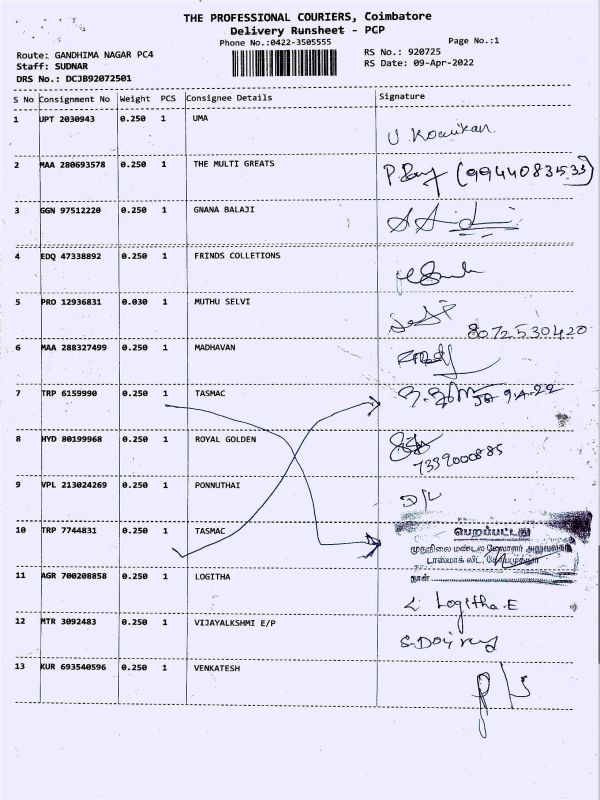 THE PROFESSIONAL COURIERS, Coimbatore
Delivery Runsheet - PCP
Phone No.:0422-3505555
Page No.:1
Route: GANDHIMA NAGAR PC4
RS No.: 920725
Staff: SUDNAR
RS Date: 09-Apr-2022
DRS No.: DCJB92072501
S No Consignment No Weight PCS Consignee Details Signature
1 UPT 2030943 0.250 1 UMA
2 MAA 280693578 0.250 1 THE MULTI GREATS (9944083533)
3 GGN 97512220 0.250 1 GNANA BALAJI
4 EDQ 47338892 0.250 1 FRINDS COLLETIONS
5 PRO 12936831 0.030 1 MUTHU SELVI
8072530420
6 MAA 288327499 0.250 1 MADHAVAN
7 TRP 6159990 0.250 1 TASMAC 9.4.22
8 HYD 80199968 0.250 1 ROYAL GOLDEN
7339000885
9 VPL 213024269 0.250 1 PONNUTHAI
D/L
10 TRP 7744831 0.250 1 TASMAC பெறப்பட்டது
முதுநிலை மண்டல மேலாளர் அலுவலகம்
டாஸ்மாக் லிட்,
நாள்
11 AGR 700208858 0.250 1 LOGITHA
L Logitha.E
12 MTR 3092483 0.250 1 VIJAYALKSHMI E/P
13 KUR 693540596 0.250 1 VENKATESH